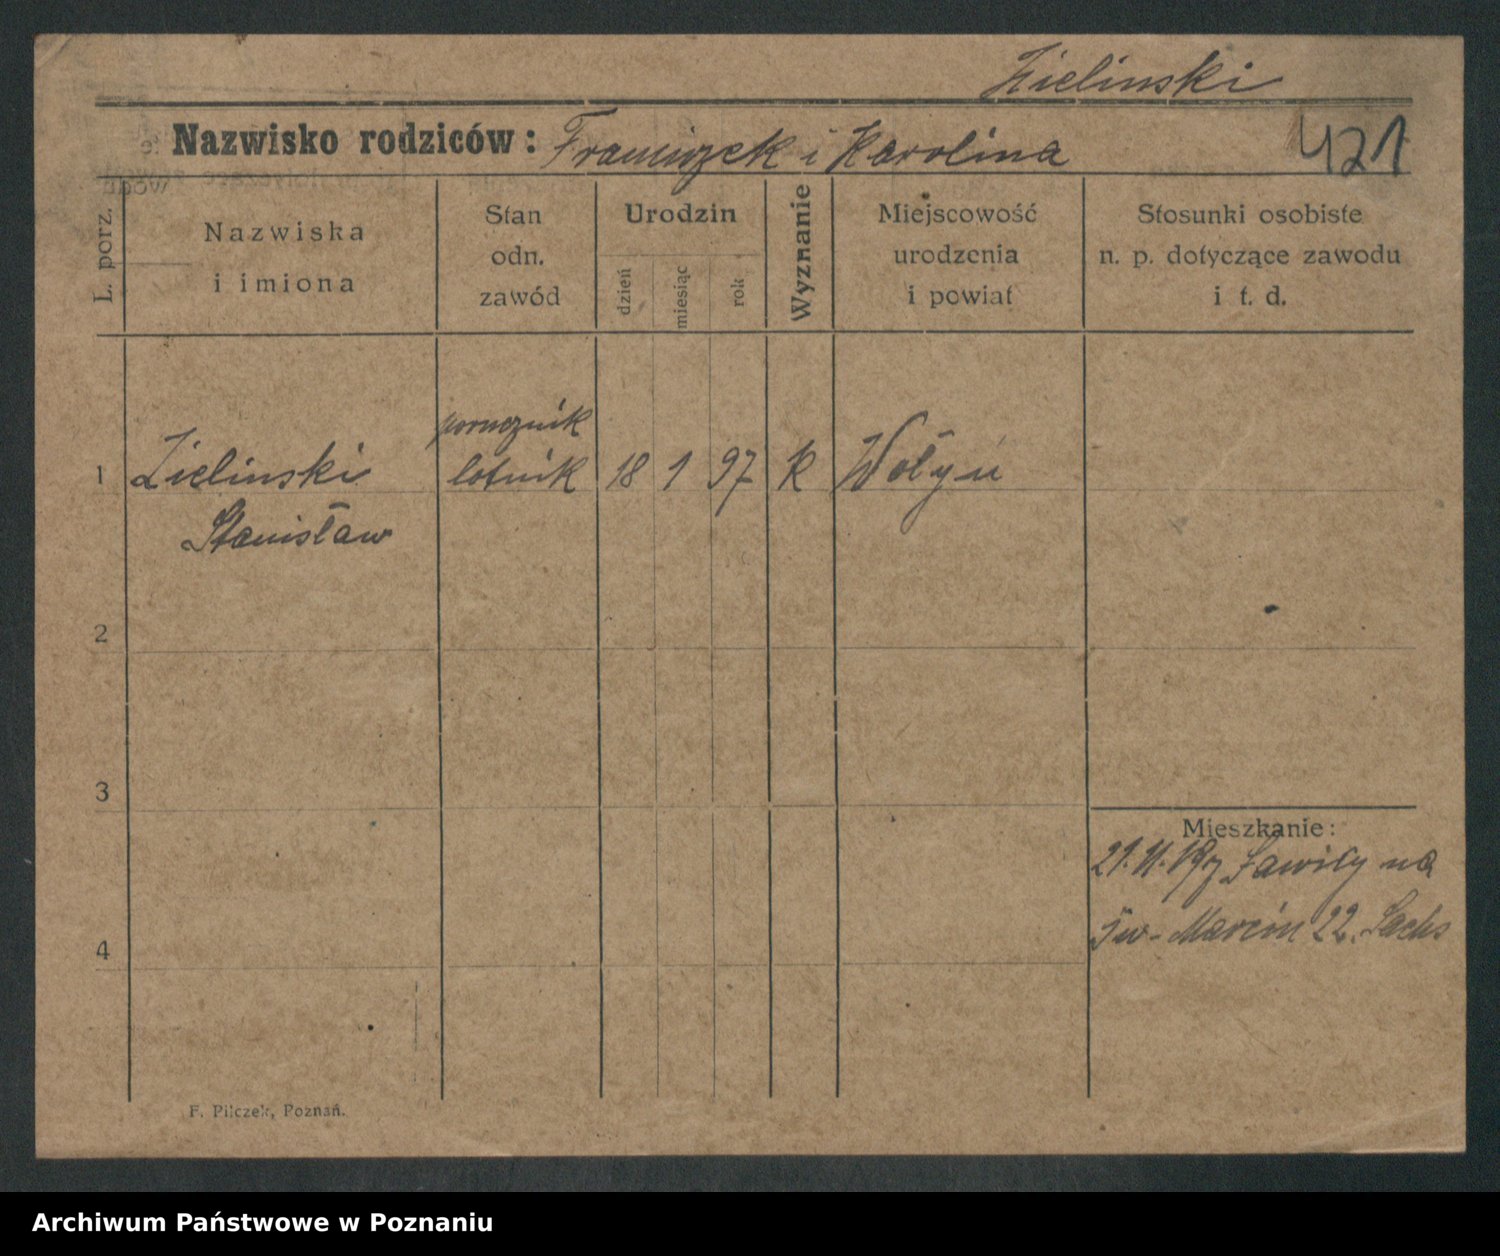 Zielinski
Nazwisko rodziców: Franciszek i Karolina
421
L. porz.
Nazwiska
i imiona
Stan
odn.
zawód
Urodzin
dzień
miesiąc
rok
Wyznanie
Miejscowość
urodzenia
i powiat
Stosunki osobiste
n. p. dotyczące zawodu
i t. d.
porucznik
1 Zielinski lotnik 18 1 97 k Wołyń
Stanisław
2
3
Mieszkanie:
21. 11. Ławicy na
Św. Marcin 22. Sachs
4
F. Pilczek, Poznań.
Archiwum Państwowe w Poznaniu